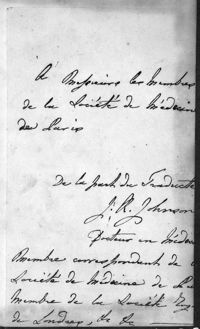 à Messieurs les Membres
de la Société de Médecin
de Paris
De la part du Traducte
J. R. Johnson
Docteur en Médec
Membre correspondant de
Société de Médecine de Pa
Membre de la Société
de Londres, &c &c